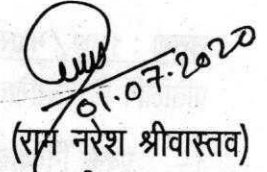 01.07.2020
(राम नरेश श्रीवास्तव)